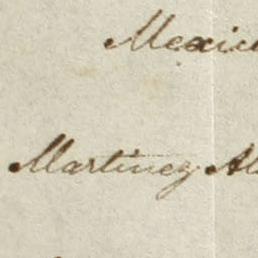 Mexic
Martinez Al